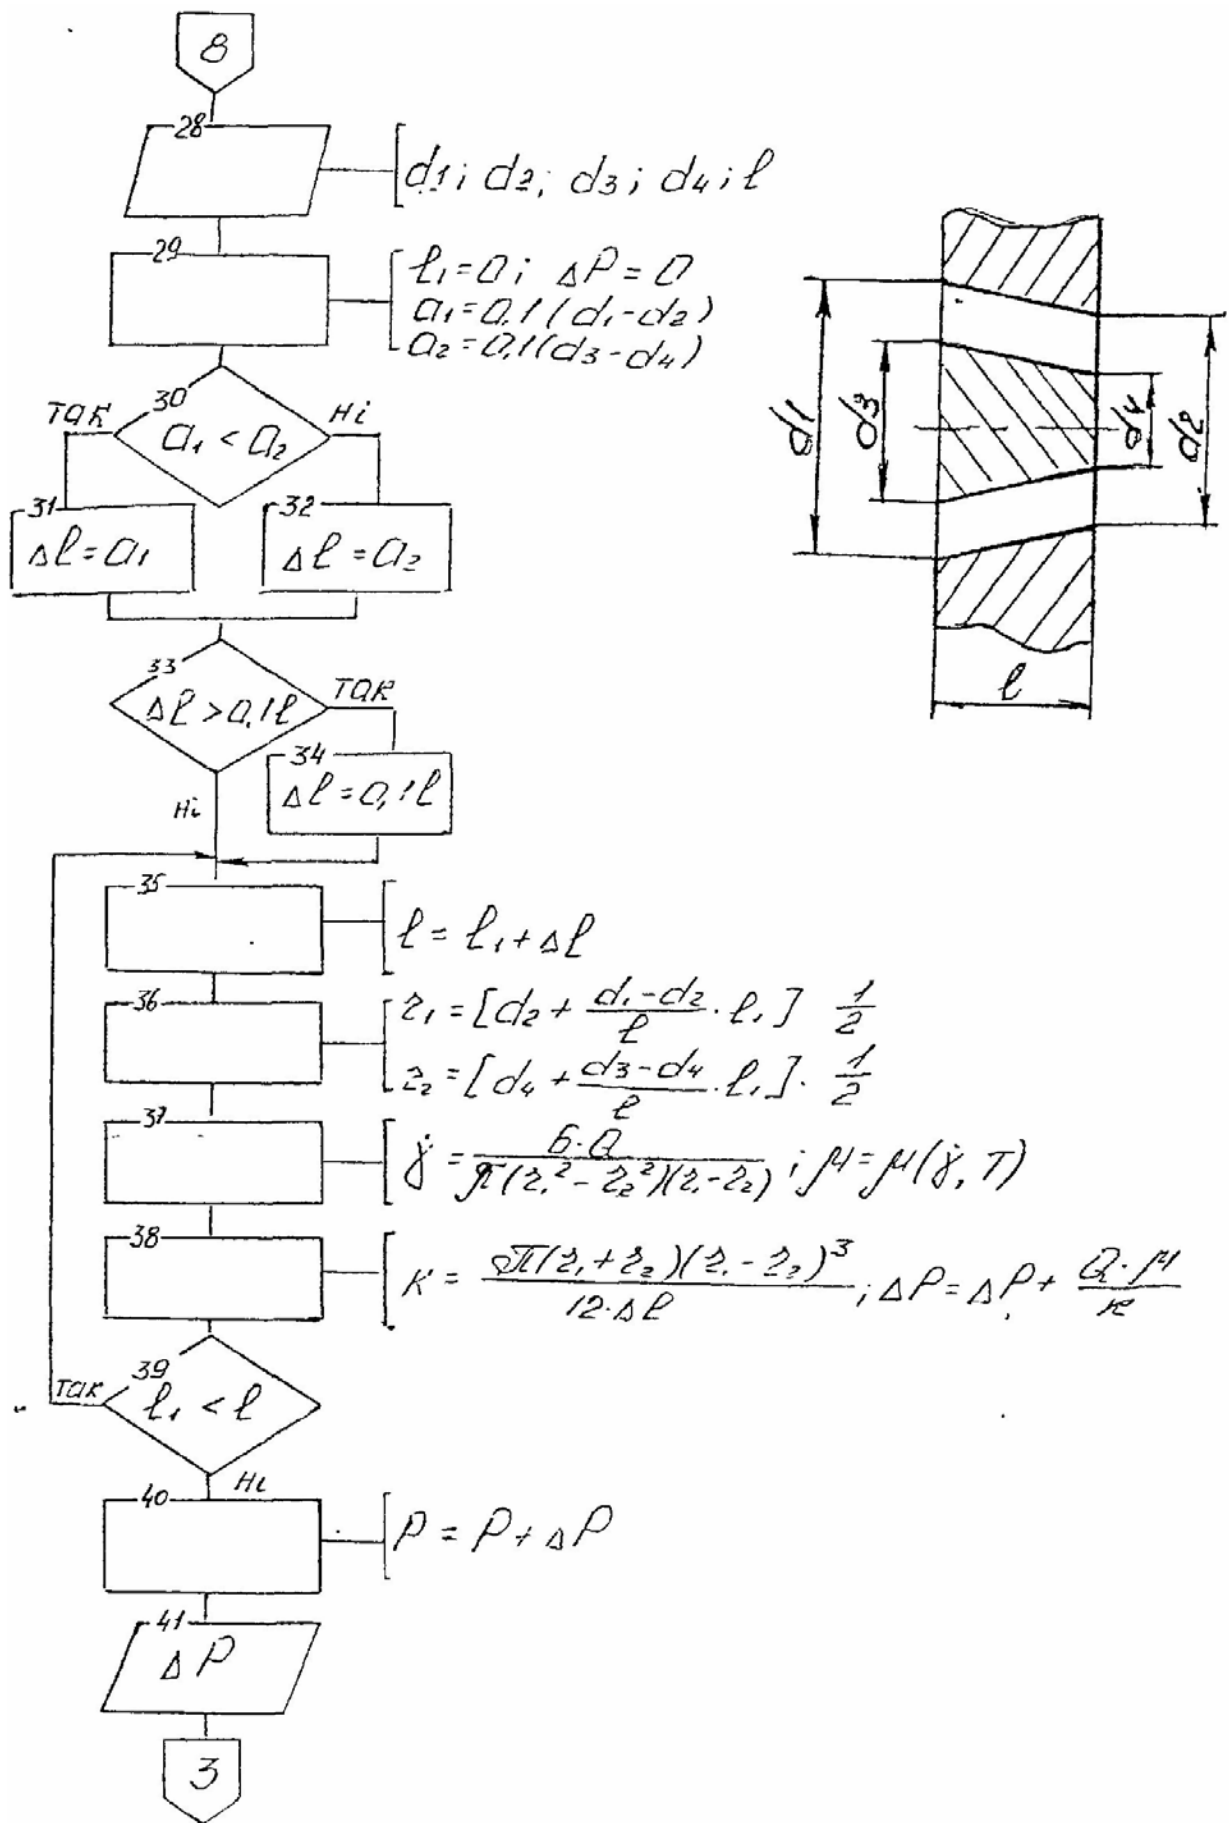 8
28
d1; d2; d3; d4; l
29
l₁=0; ΔP=0
a₁=0,1(d₁-d₂)
a₂=0,1(d₃-d₄)
30
так
Ні
a₁ < a₂
31
Δl=a₁
32
Δl=a₂
33
Δl>0,1l
так
34
Δl=0,1l
Ні
35
l=l₁+Δl
36
r₁=[d₂+(d₁-d₂)/l·l₁] 1/2
r₂=[d₄+(d₃-d₄)/l·l₁]·1/2
37
γ̇=6·Q/π(r₁²-r₂²)(r₁-r₂); μ=μ(γ̇,T)
38
K=π(r₁+r₂)(r₁-r₂)³/12·Δl; ΔP=ΔP+Q·μ/к
39
так
l₁<l
Ні
40
P=P+ΔP
41
ΔP
3
d1
d3
d4
d2
l